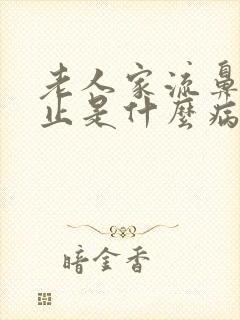 老人家流鼻
止是什麼病
暗金香